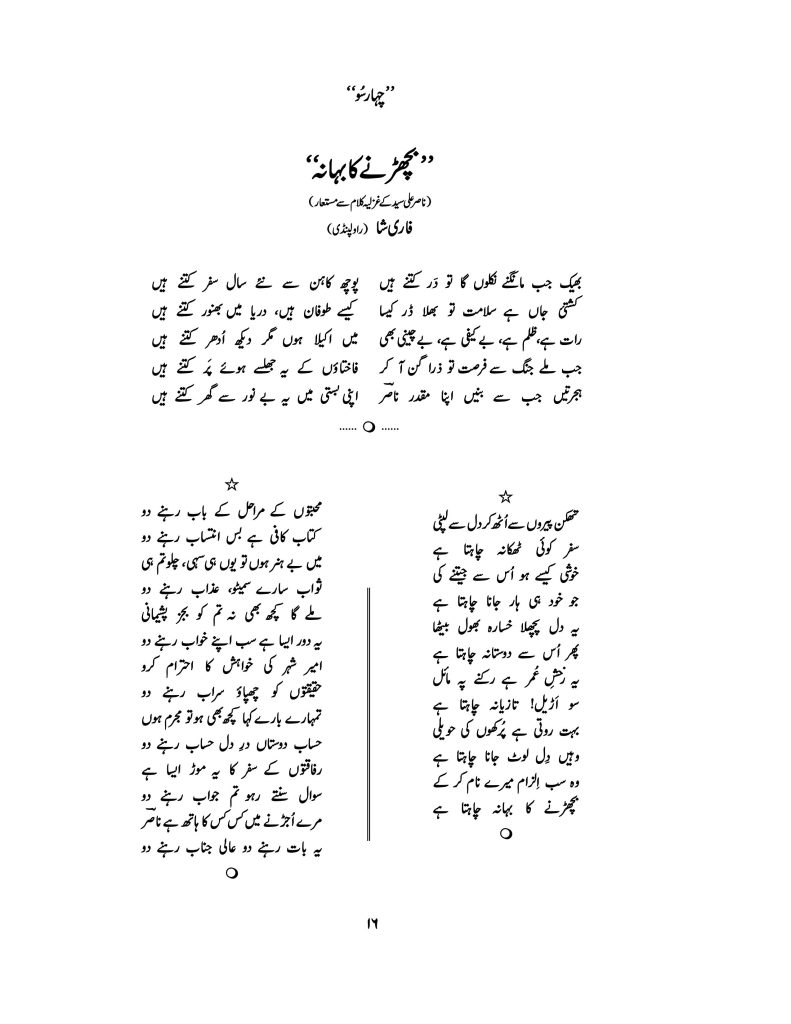 ”چہارسُو“
”بچھڑنے کا بہانہ“
(ناصر علی سید کے غزلیہ کلام سے مستعار)
فاری شا (راولپنڈی)
بھیک جب مانگنے نکلوں گا تو دَر کتنے ہیں پوچھ کاہن سے نئے سال سفر کتنے ہیں
کشتیٔ جاں ہے سلامت تو بھلا ڈر کیسا کیسے طوفان ہیں، دریا میں بھنور کتنے ہیں
رات ہے، ظلم ہے، بے کیفی ہے، بے چینی بھی میں اکیلا ہوں مگر دیکھ اُدھر کتنے ہیں
جب ملے جنگ سے فرصت تو ذرا گن آ کر فاختاؤں کے یہ جھلسے ہوئے پَر کتنے ہیں
ہجرتیں جب سے بنیں اپنا مقدر ناصرؔ اپنی بستی میں یہ بے نور سے گھر کتنے ہیں
...... ❍ ......
☆
تھکن پیروں سے اُٹھ کر دل سے لپٹی
سفر کوئی ٹھکانہ چاہتا ہے
خوشی کیسے ہو اُس سے جیتنے کی
جو خود ہی ہار جانا چاہتا ہے
یہ دل پچھلا خسارہ بھول بیٹھا
پھر اُس سے دوستانہ چاہتا ہے
یہ رَخشِ عُمر ہے رکنے پہ مائل
سو اَڑیل! تازیانہ چاہتا ہے
بہت روتی ہے پُرکھوں کی حویلی
وہیں دِل لوٹ جانا چاہتا ہے
وہ سب اِلزام میرے نام کر کے
بچھڑنے کا بہانہ چاہتا ہے
❍
☆
محبتوں کے مراحل کے باب رہنے دو
کتاب کافی ہے بس انتساب رہنے دو
میں بے ہنر ہوں تو یوں ہی سہی، چلو تم ہی
ثواب سارے سمیٹو، عذاب رہنے دو
ملے گا کچھ بھی نہ تم کو بجز پشیمانی
یہ دور ایسا ہے سب اپنے خواب رہنے دو
امیر شہر کی خواہش کا احترام کرو
حقیقتوں کو چھپاؤ سراب رہنے دو
تمہارے بارے کہا کچھ بھی ہو تو مجرم ہوں
حساب دوستاں درِ دل حساب رہنے دو
رفاقتوں کے سفر کا یہ موڑ ایسا ہے
سوال سنتے رہو تم جواب رہنے دو
مرے اُجڑنے میں کس کس کا ہاتھ ہے ناصرؔ
یہ بات رہنے دو عالی جناب رہنے دو
❍
۱۶